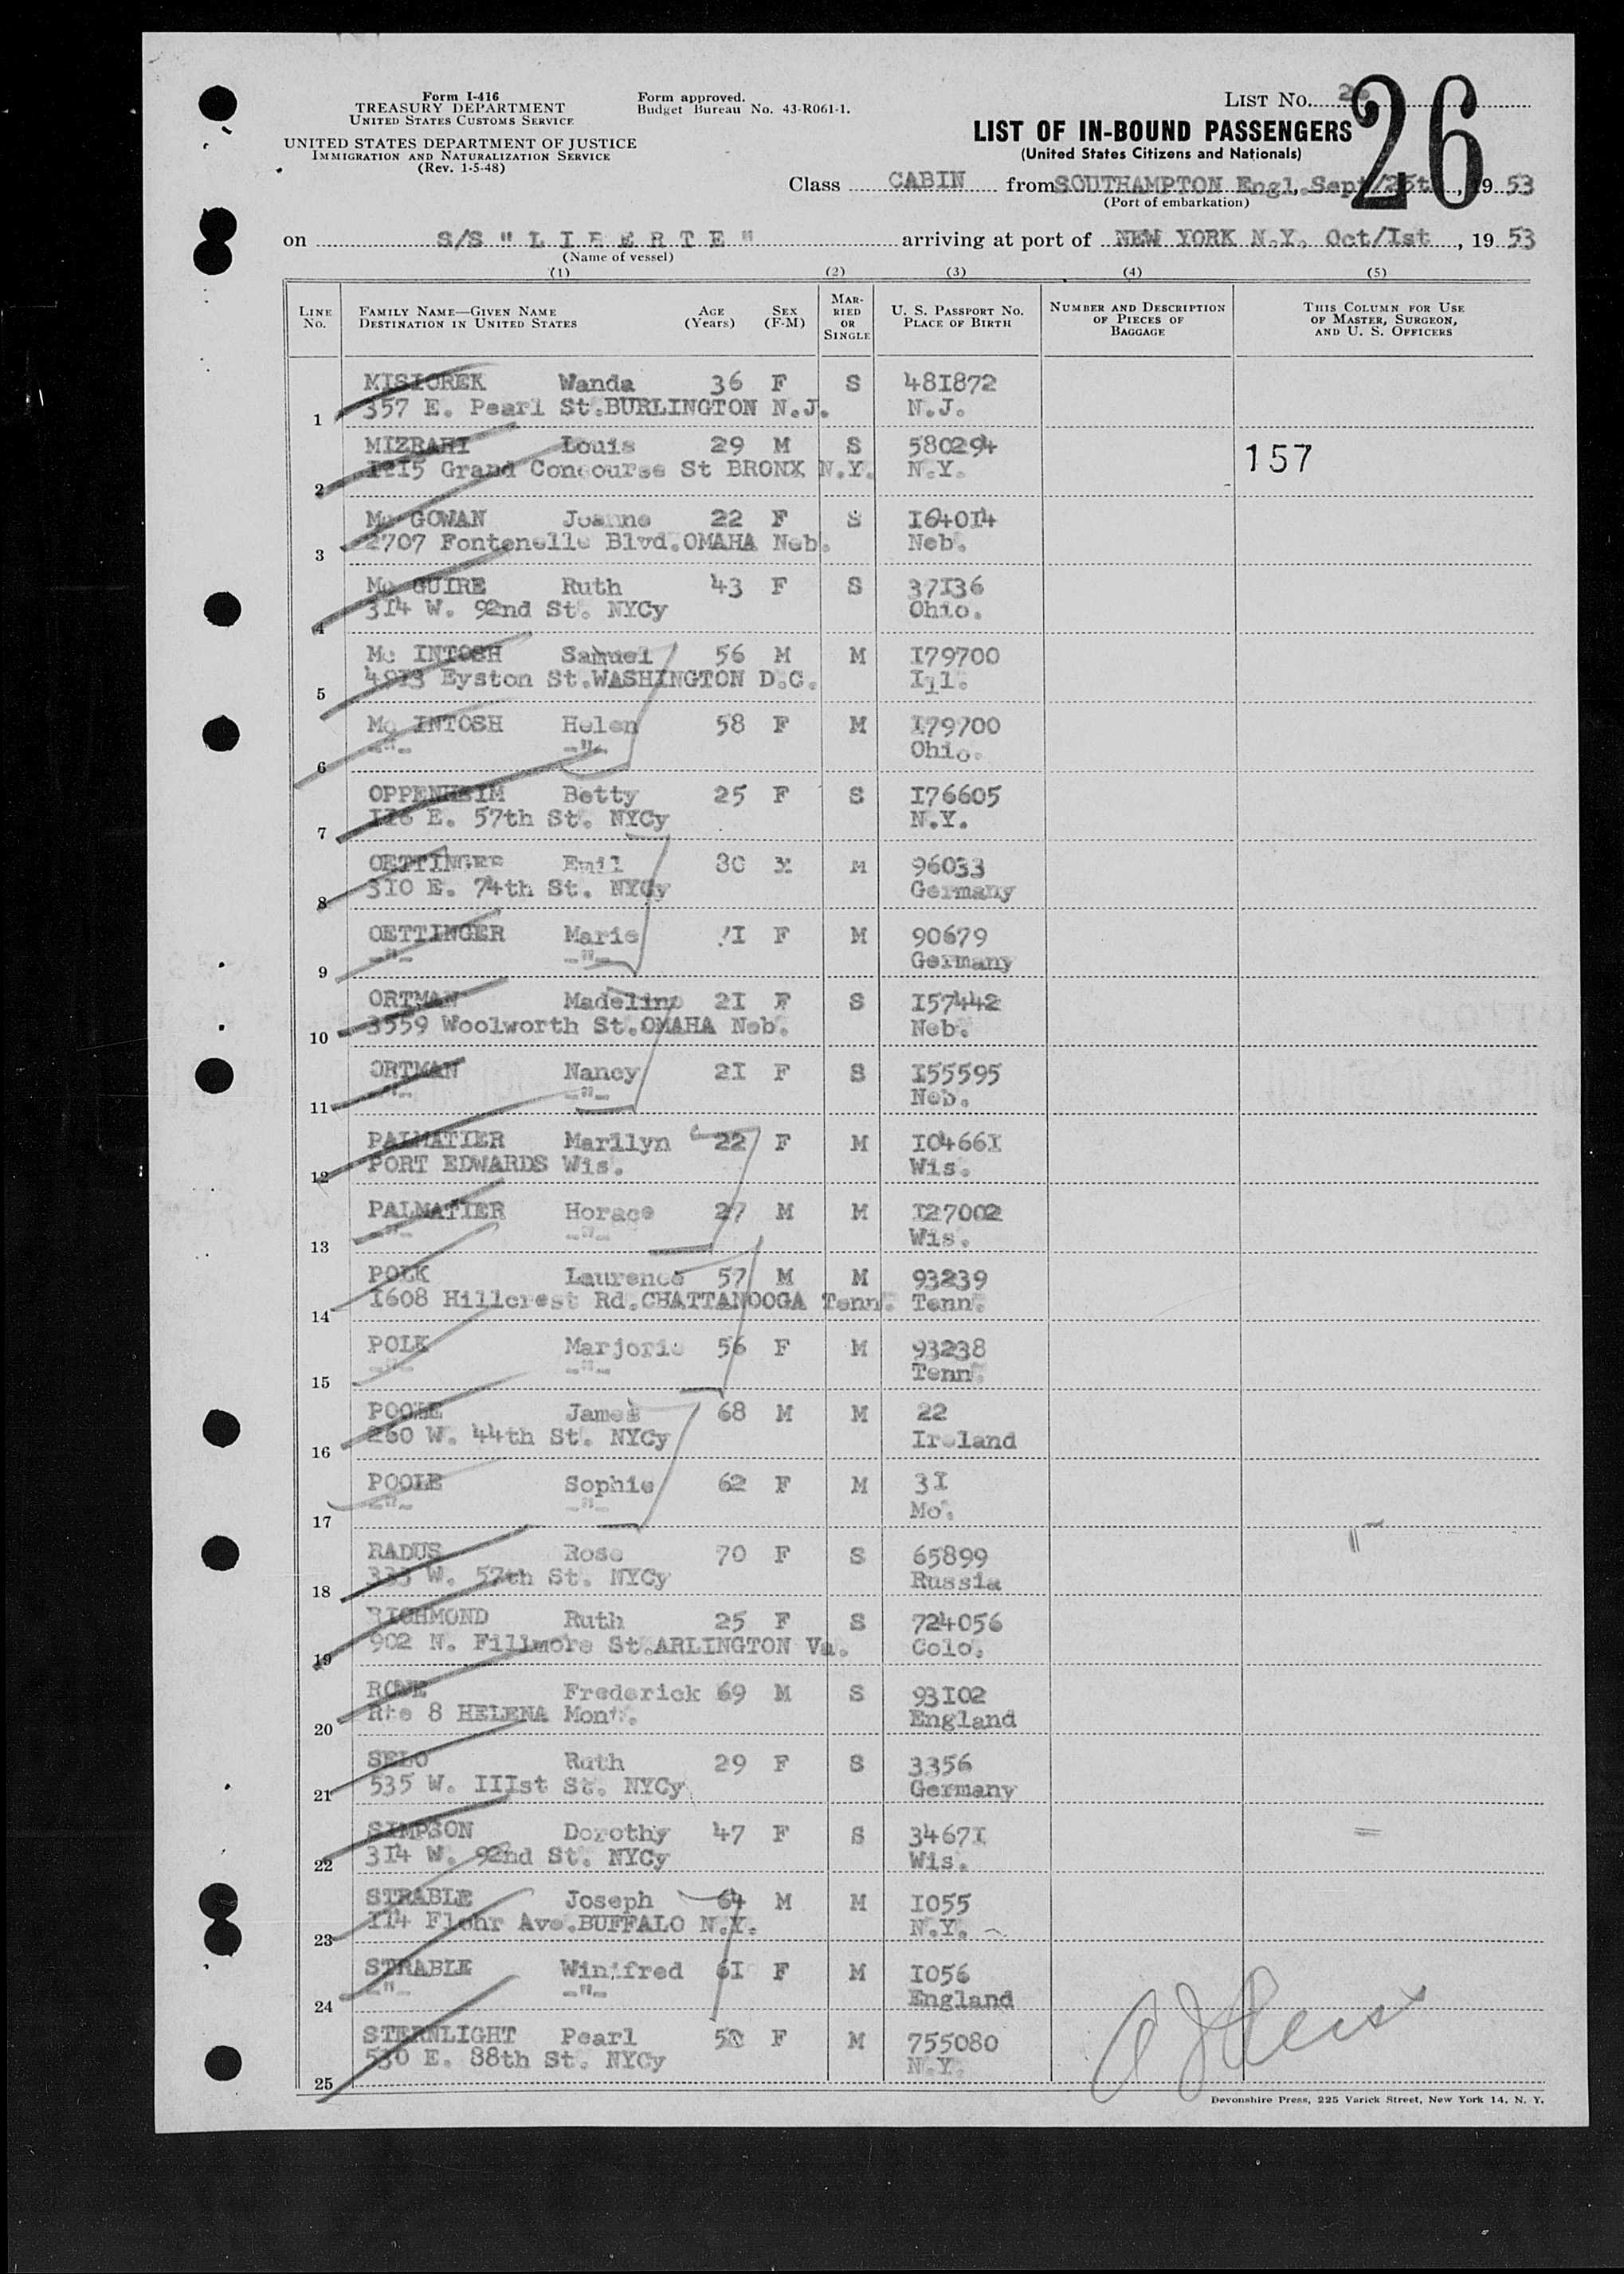 Form I-416
TREASURY DEPARTMENT
UNITED STATES CUSTOMS SERVICE
UNITED STATES DEPARTMENT OF JUSTICE
IMMIGRATION AND NATURALIZATION SERVICE
(Rev. 1-5-48)
Form approved.
Budget Bureau No. 43-R061-1.
LIST No.
26
LIST OF IN-BOUND PASSENGERS
(United States Citizens and Nationals)
Class CABIN from SOUTHAMPTON Engl. Sept/25t, 19 53
(Port of embarkation)
on S/S " L I B E R T E " arriving at port of NEW YORK N.Y. Oct/Ist, 19 53
(Name of vessel)
(1) (2) (3) (4) (5)
LINE No. FAMILY NAME—GIVEN NAME DESTINATION IN UNITED STATES AGE (Years) SEX (F-M) MARRIED OR SINGLE U. S. PASSPORT No. PLACE OF BIRTH NUMBER AND DESCRIPTION OF PIECES OF BAGGAGE THIS COLUMN FOR USE OF MASTER, SURGEON, AND U. S. OFFICERS
MISIOREK Wanda 36 F S 48I872
1 357 E. Pearl St.BURLINGTON N.J. N.J.
MIZRAHI Louis 29 M S 580294
157
2 I2I5 Grand Concourse St BRONX N.Y. N.Y.
Mc GOWAN Joanne 22 F S I640I4
3 2707 Fontenelle Blvd.OMAHA Neb. Neb.
Mc GUIRE Ruth 43 F S 37I36
4 3I4 W. 92nd St. NYCy Ohio.
Mc INTOSH Samuel 56 M M I79700
5 49I3 Eyston St.WASHINGTON D.C. Ill.
Mc INTOSH Helen 58 F M I79700
6 -"- -"- Ohio.
OPPENHEIM Betty 25 F S I76605
7 E. 57th St. NYCy N.Y.
OETTINGER Emil 80 M M 96033
8 3I0 E. 74th St. NYCy Germany
OETTINGER Marie F M 90679
9 -"- -"- Germany
ORTMAN Madeline 2I F S I57442
10 3559 Woolworth St.OMAHA Neb. Neb.
ORTMAN Nancy 2I F S I55595
11 -"- -"- Neb.
PALMATIER Marilyn 22 F M I0466I
12 PORT EDWARDS Wis. Wis.
PALMATIER Horace 27 M M I27002
13 -"- -"- Wis.
POLK Laurence 57 M M 93239
14 I608 Hillcrest Rd.CHATTANOOGA Tenn. Tenn.
POLK Marjorie 56 F M 93238
15 -"- -"- Tenn.
POOLE James 68 M M 22
16 260 W. 44th St. NYCy Ireland
POOLE Sophie 62 F M 3I
17 -"- -"- Mo.
RADUS Rose 70 F S 65899
18 333 W. 57th St. NYCy Russia
RICHMOND Ruth 25 F S 724056
19 902 N. Fillmore St.ARLINGTON Va. Colo.
ROWE Frederick 69 M S 93I02
20 Rte 8 HELENA Mont. England
SELO Ruth 29 F S 3356
21 535 W. IIIst St. NYCy Germany
SIMPSON Dorothy 47 F S 3467I
22 3I4 W. 92nd St. NYCy Wis.
STRABLE Joseph 64 M M I055
23 II4 Flohr Ave.BUFFALO N.Y. N.Y.
STRABLE Winifred 6I F M I056
24 -"- -"- England
STERNLIGHT Pearl F M 755080
25 530 E. 88th St. NYCy N.Y.
Devonshire Press, 225 Varick Street, New York 14, N. Y.